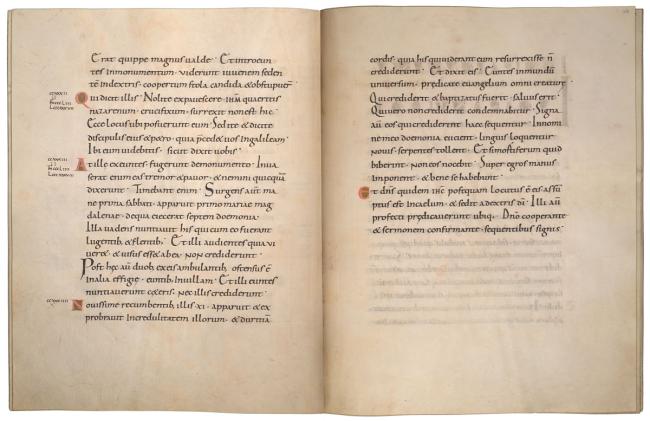 Erat quippe magnus ualde · Et introeun
tes in monumentum uiderunt iuuenem seden
tē in dextris · coopertum stola candida & obstupuer̄
Qui dicit illis · Nolite expauescere · ihm̄ quaeritis
nazarenum · crucifixum · surrexit non est hic ·
Ecce locus ubi posuerunt eum · Sed ite & dicite
discipulis eius & petro · quia p̄cedet uos in galileam ·
Ibi eum uidebitis · sicut dixit uobis ·
At illę exeuntes · fugerunt de monumento · Inua
serat enim eas tremor & pauor · & nemini quicquā
dixerunt · Timebant enim · Surgens aut̄ ma
ne prima sabbati · apparuit primo mariae mag
dalenae · de qua eiecerat septem daemonia ·
Illa uadens nuntiauit his qui cum eo fuerant
lugentib; & flentib; · Et illi audientes quia ui
ueret · & uisus esset ab ea · non crediderunt ·
Post hęc aū duob; ex eis ambulantib; ostensus ē
in alia effigie · euntib; in uillam · Et illi euntes
nuntiauerunt cęteris · nec illis crediderunt ·
Nouissime recumbentib; illis · xi · apparuit & ex
probrauit incredulitatem illorum · & duritiā
cordis · quia his qui uiderant eum resurrexisse n̄
crediderunt · Et dixit eis · Euntes in mundū
uniuersum · predicate euangelium omni creaturę ·
Qui crediderit & baptizatus fuerit · saluus erit ·
Qui uero non crediderit condemnabitur · Signa
aū eos qui crediderint haec sequentur · In nomi
ne meo daemonia eicient · linguis loquentur
nouis · serpentes tollent · Et si mortiferum quid
biberint · non eos nocebit · Super egros manus
imponent · & bene se habebunt ·
Et dn̄s quidem ihc̄ postquam locutus ē eis assū
ptus est in caelum · & sedit a dextris dī · Illi aū
profecti prędicauerunt ubiq; · Dn̄o cooperante
& sermonem confirmante · sequentibus signis ·